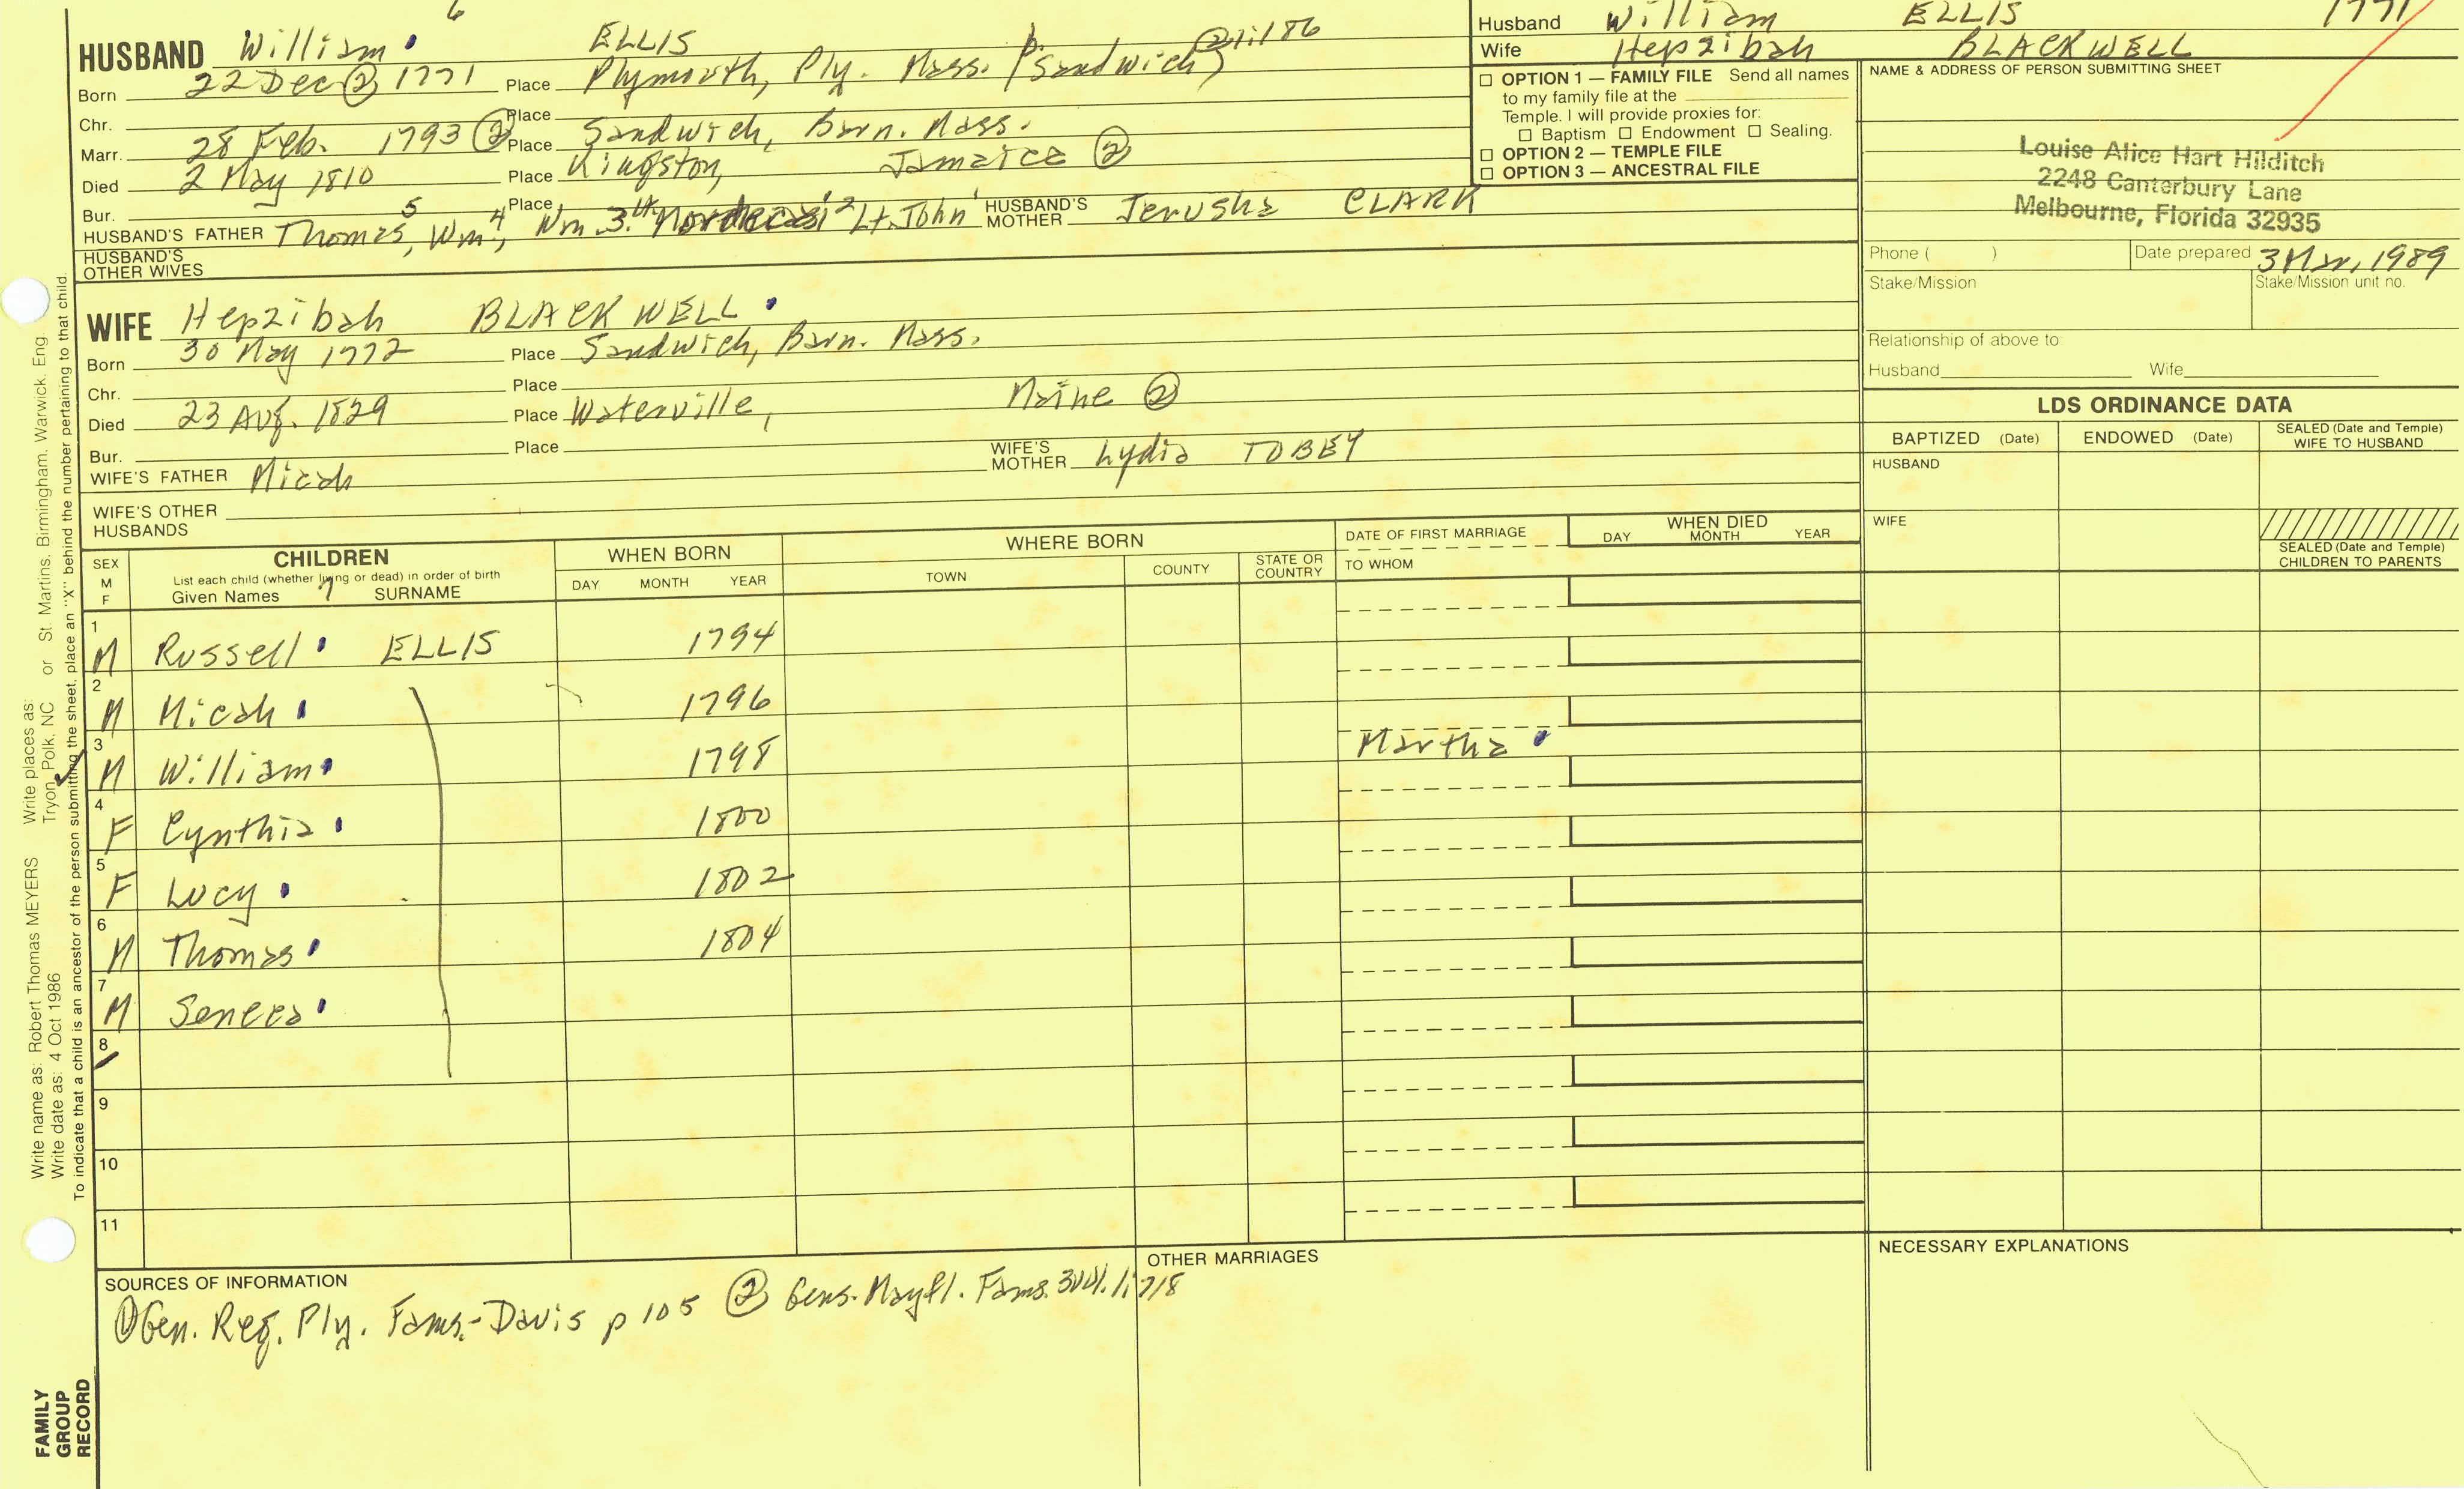 6
HUSBAND William ELLIS
Born 22 Dec ② 1771 Place Plymouth, Ply. Mass. (Sandwich)
Chr. Place
Marr. 28 Feb. 1793 ② Place Sandwich, Barn. Mass.
Died 2 May 1810 Place Kingston, Jamaica ②
Bur. Place
HUSBAND'S FATHER Thomas 5, Wm 4, Wm. 3. Mordecai 2 Lt. John 1 HUSBAND'S MOTHER Jerusha CLARK
HUSBAND'S OTHER WIVES
WIFE Hepzibah BLACKWELL
Born 30 May 1772 Place Sandwich, Barn. Mass.
Chr. Place
Died 23 Aug. 1829 Place Waterville, Maine ②
Bur. Place
WIFE'S FATHER Micah WIFE'S MOTHER Lydia TOBEY
WIFE'S OTHER HUSBANDS
Husband William ELLIS 1771
Wife Hepzibah BLACKWELL
☐ OPTION 1 — FAMILY FILE Send all names
to my family file at the
Temple. I will provide proxies for:
☐ Baptism ☐ Endowment ☐ Sealing.
☐ OPTION 2 — TEMPLE FILE
☐ OPTION 3 — ANCESTRAL FILE
NAME & ADDRESS OF PERSON SUBMITTING SHEET
Louise Alice Hart Hilditch
2248 Canterbury Lane
Melbourne, Florida 32935
Phone ( ) Date prepared 3 Mar, 1989
Stake/Mission Stake/Mission unit no.
Relationship of above to:
Husband Wife
LDS ORDINANCE DATA
BAPTIZED (Date) ENDOWED (Date) SEALED (Date and Temple) WIFE TO HUSBAND
HUSBAND
WIFE
SEALED (Date and Temple)
CHILDREN TO PARENTS
SEX M F CHILDREN WHEN BORN WHERE BORN DATE OF FIRST MARRIAGE WHEN DIED
List each child (whether living or dead) in order of birth
Given Names 7 SURNAME DAY MONTH YEAR TOWN COUNTY STATE OR COUNTRY TO WHOM DAY MONTH YEAR
1 M Russell ELLIS 1794
2 M Micah 1796
3 M William 1798 Martha
4 F Cynthia 1800
5 F Lucy 1802
6 M Thomas 1804
7 M Seneca
8
9
10
11
SOURCES OF INFORMATION
① Gen. Reg. Ply. Fams.-Davis p 105 ② Gens. Mayfl. Fams. 3Vol.
OTHER MARRIAGES
NECESSARY EXPLANATIONS
Write name as: Robert Thomas MEYERS Write places as:
Write date as: 4 Oct 1986 Tryon, Polk, NC or St. Martins. Birmingham. Warwick. Eng
To indicate that a child is an ancestor of the person submitting the sheet, place an "X" behind the number pertaining to that child.
FAMILY
GROUP
RECORD